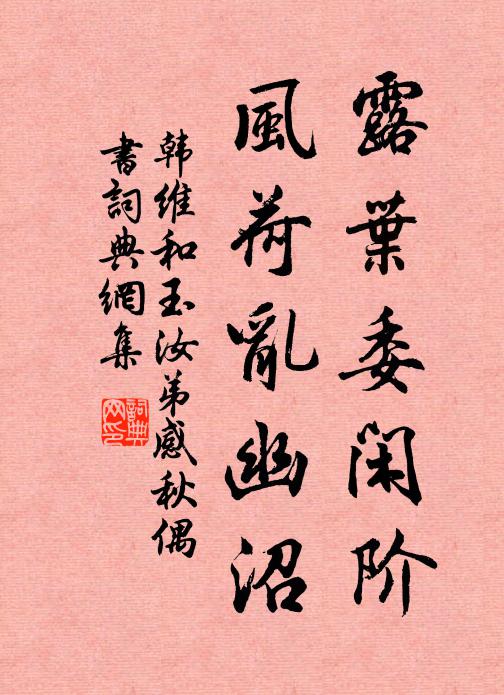 露葉委閑阶
風荷亂幽沼
韩維和玉汝弟感秋偶
書詞典網集
詞典网印